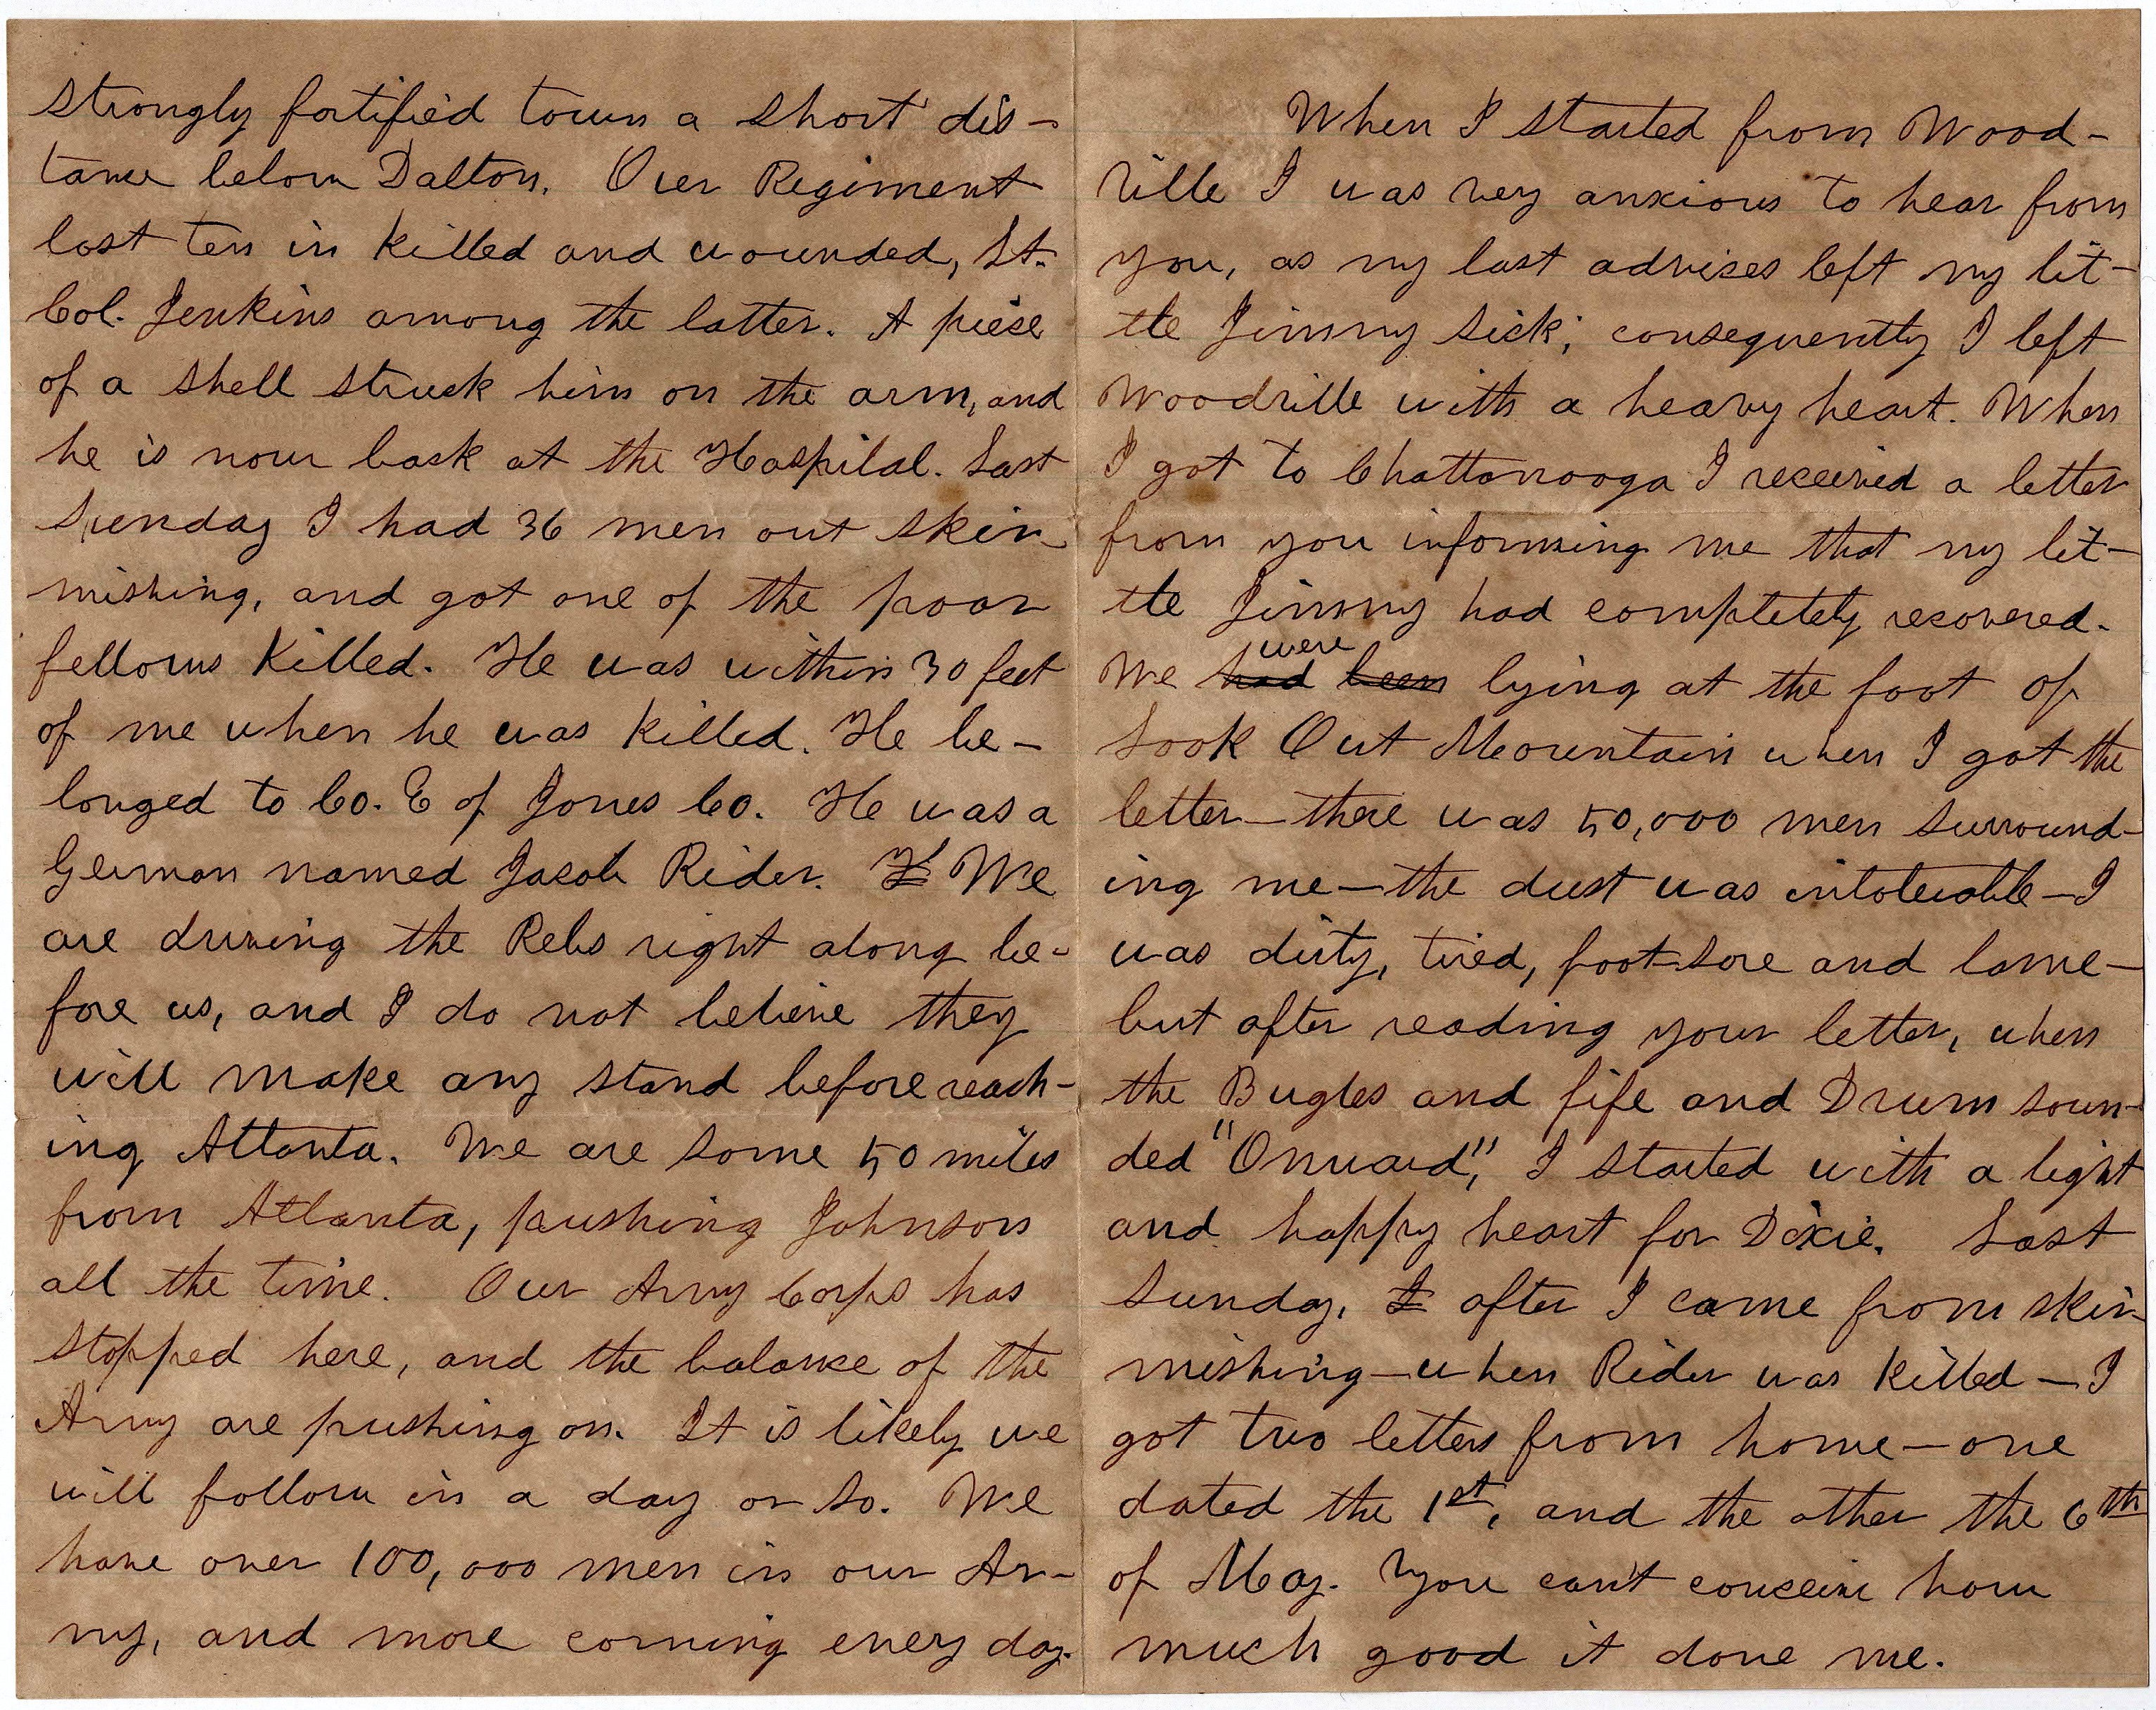 strongly fortified town a short dis-
tance below Dalton. Our Regiment
lost ten in killed and wounded, Lt.
Col. Jenkins among the latter. A piese
of a shell struck him on the arm, and
he is now back at the Hospital. Last
Sunday I had 36 men out skir-
mishing, and got one of the poor
fellows killed. He was within 30 feet
of me when he was killed. He be-
longed to Co. E of Jones Co. He was a
German named Jacob Rider. We
are driving the Rebs right along be-
fore us, and I do not believe they
will make any stand before reach-
ing Atlanta. We are some 50 miles
from Atlanta, pushing Johnson
all the time. Our Army Corps has
stopped here, and the balance of the
Army are pushing on. It is likely we
will follow in a day or so. We
have over 100,000 men in our Ar-
my, and more coming every day.
When I started from Wood-
ville I was very anxious to hear from
you, as my last advises left my lit-
tle Jimmy sick; consequently I left
Woodville with a heavy heart. When
I got to Chattanooga I received a letter
from you informing me that my lit-
tle Jimmy had completely recovered.
were
We had been lying at the foot of
Look Out Mountain when I got the
letter—there was 50,000 men surround-
ing me—the dust was intolerable—I
was dirty, tired, foot-sore and lame—
but after reading your letter, when
the Bugles and fife and Drum soun-
ded "Onward," I started with a light
and happy heart for Dixie. Last
Sunday, I after I came from skir-
mishing—when Rider was killed—I
got two letters from home—one
dated the 1st, and the other the 6th
of May. You can't conceive how
much good it done me.